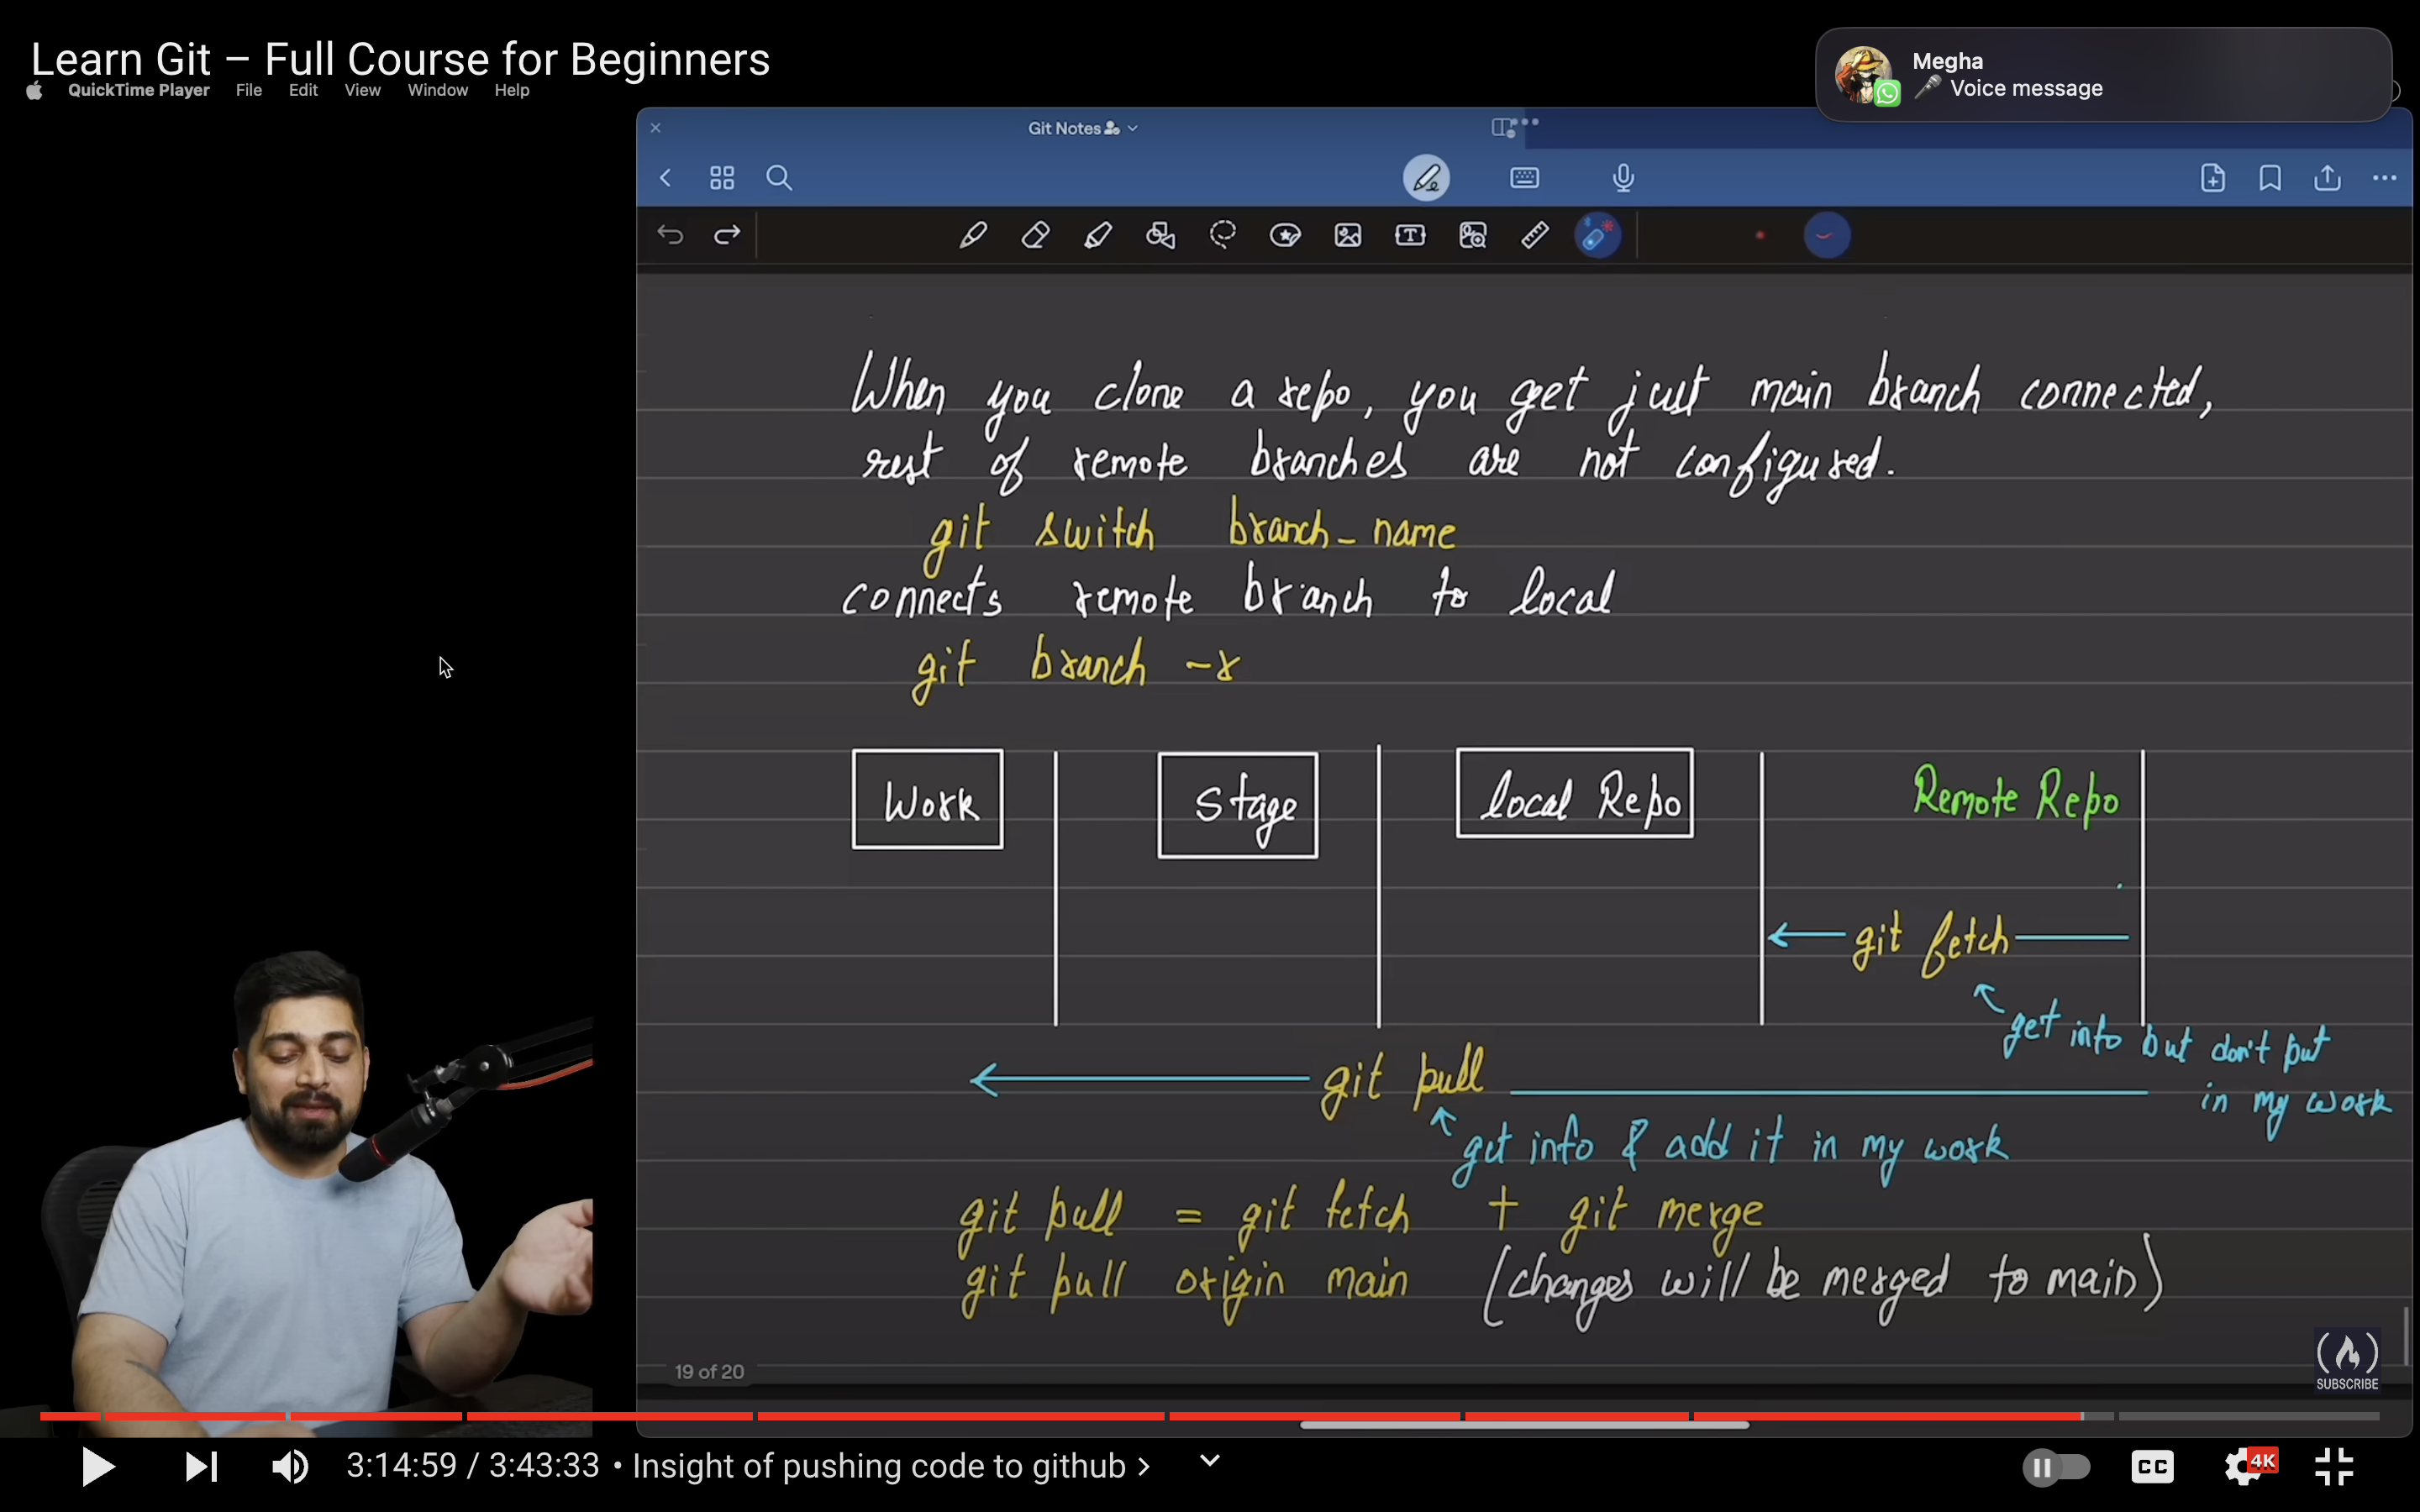 Learn Git – Full Course for Beginners
QuickTime Player File Edit View Window Help
Megha
Voice message
Git Notes
When you clone a repo, you get just main branch connected,
rest of remote branches are not configured.
git switch branch_name
connects remote branch to local
git branch -r
Work Stage local Repo Remote Repo
git fetch
get info but don't put
in my work
git pull
get info & add it in my work
git pull = git fetch + git merge
git pull origin main (changes will be merged to main)
19 of 20
SUBSCRIBE
3:14:59 / 3:43:33 • Insight of pushing code to github >
CC
4K